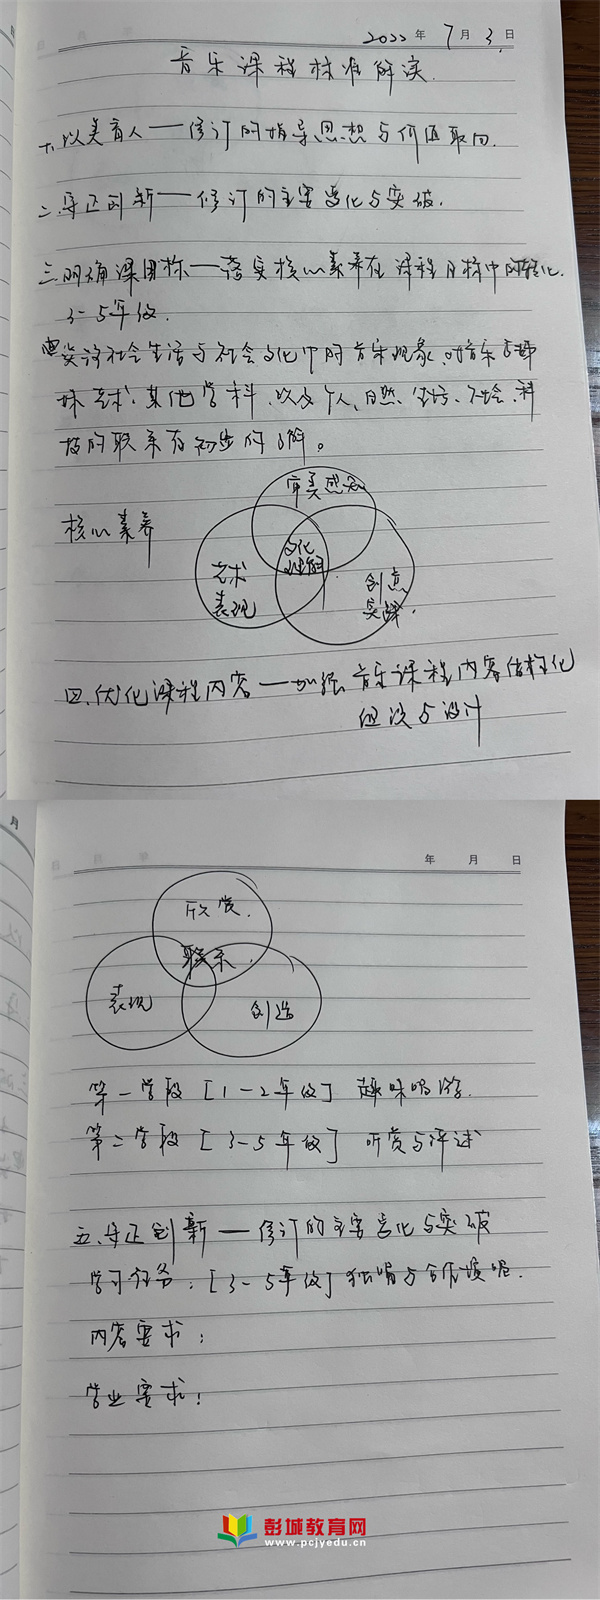 2022年7月3日
音乐课程标准解读.
一.以美育人——修订的指导思想与价值取向.
二.守正创新——修订的主要变化与突破.
三.明确课程目标——落实核心素养在课程目标中的转化.
3-5年级.
社会生活与社会文化中的音乐现象.对音乐与姊
妹艺术、其他学科、以及个人、自然、生活、社会、科
技的联系有初步的了解。
核心素养
审美感知
文化
理解
艺术
表现
创意
实践.
四.优化课程内容——加强音乐课程内容结构化
组织与设计
年 月 日
欣赏.
联系.
表现
创造
第一学段[1-2年级] 趣味唱游.
第二学段[3-5年级] 听赏与评述
五.守正创新——修订的主要变化与突破
学习任务:[3-5年级]独唱与合作演唱.
内容要求:
学业要求:
彭城教育网
www.pcjyedu.cn